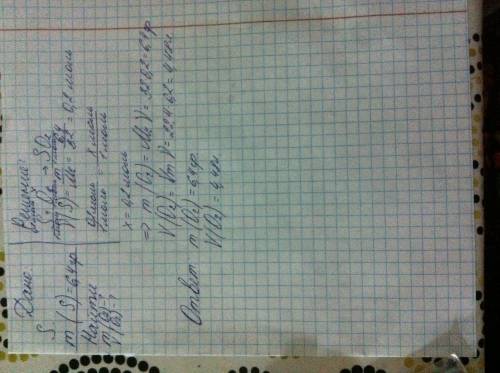 Дано:
S
m(S)=6,4гр
Найти
m(O₂)-?
V(O₂)-?
Решение:
S+O₂→SO₂
0,2 моль = x моль
1 моль 1 моль
x=0,2 моль
=> m(O₂)=Mr·V=32·0,2=6,4гр
V(O₂)=Vm·V=22,4·0,2=4,48л
Ответ: m(O₂)=6,4гр
V(O₂)=4,48л